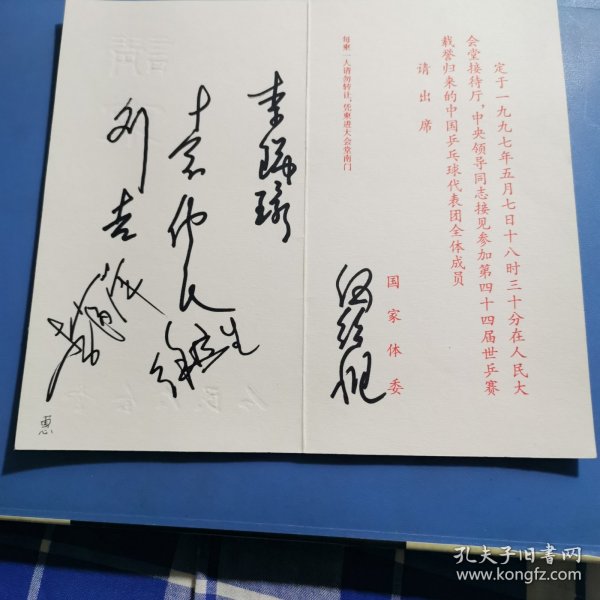 定于一九九七年五月七日十八时三十分在人民大
会堂接待厅，中央领导同志接见参加第四十四届世乒赛
载誉归来的中国乒乓球代表团全体成员
请出席
国家体委
每柬一人请勿转让，凭柬进大会堂南门
伍绍祖
李瑞环
刘吉
徐寅生
惠
請
人民大会堂
孔夫子旧书网
www.kongfz.com